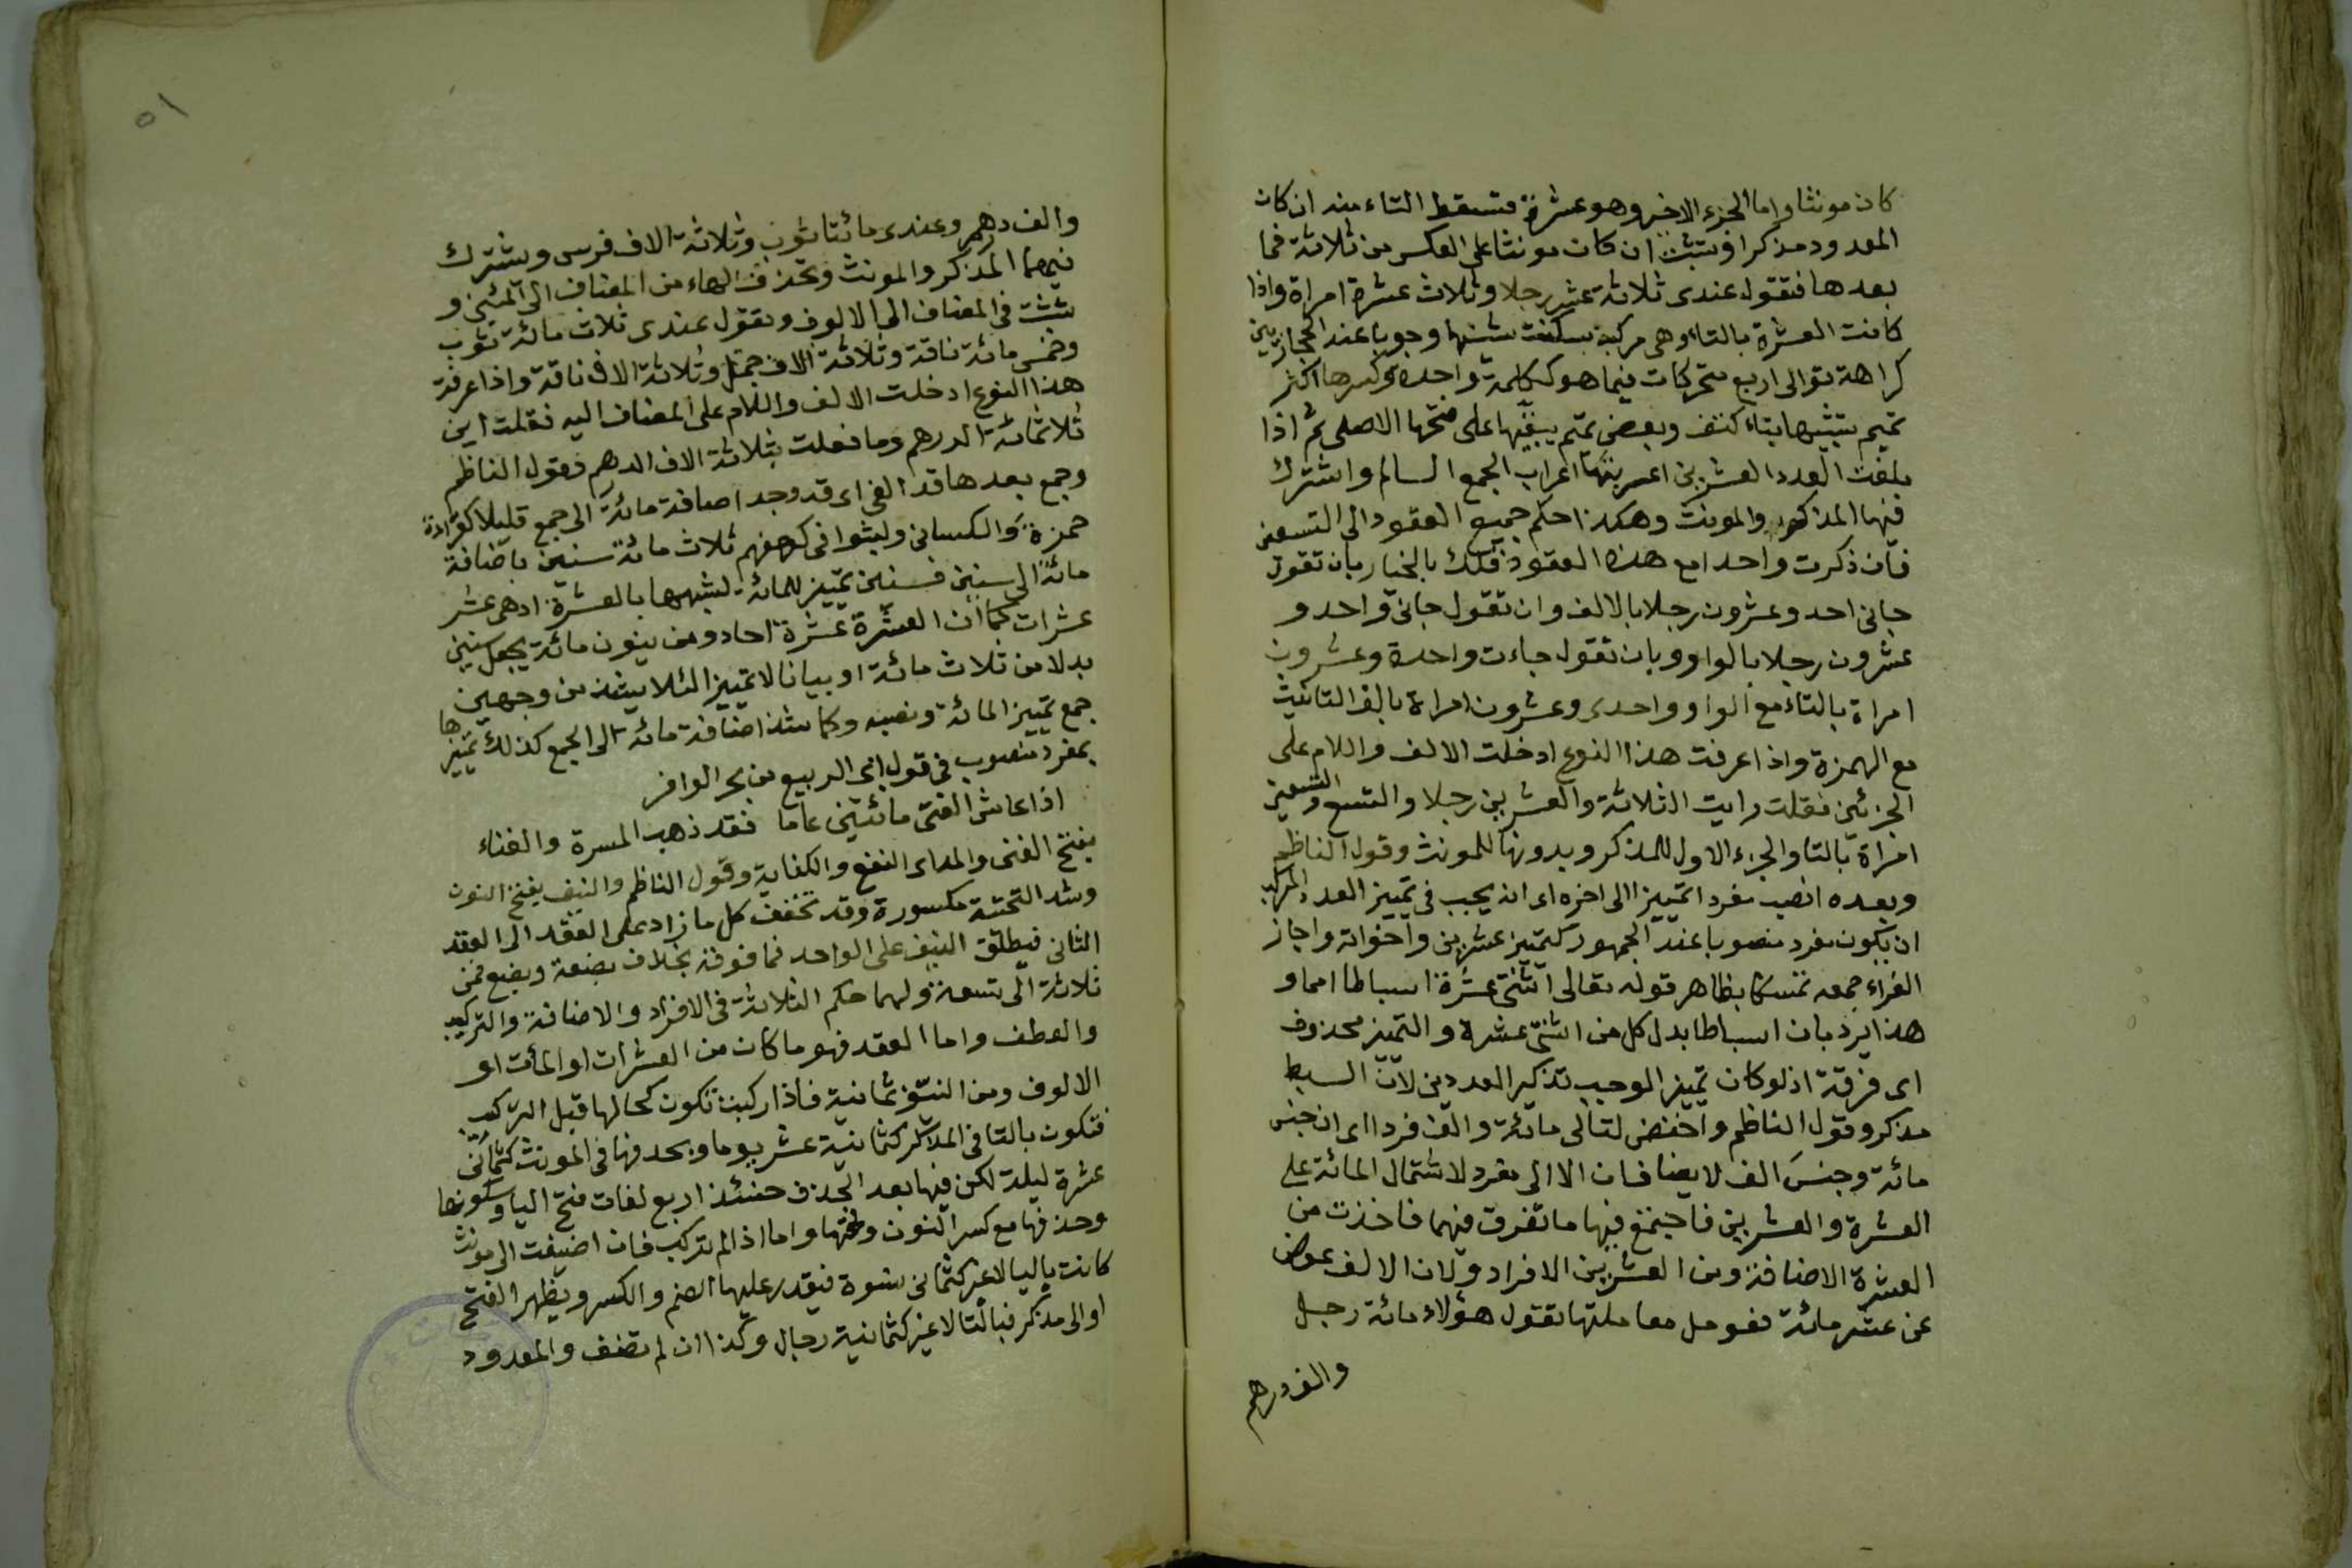 كان مونثا واما الجزء الاخير وهو عشرة فتسقط التاء منه ان كان
المعدود مذكرا وتثبت ان كان مونثا على العكس من ثلاثة فما
بعدها فتقول عندى ثلاثة عشر رجلا وثلاث عشرة امراة واذا
كانت العشرة بالتاء وهى مركبة سكنت شينها وجوبا عند الحجازيين
كراهة توالى اربع متحركات فيما هو ككلمة واحدة وكسرها اكثر
تميم تشبيها بتاء كتف وبعض تميم يبقيها على فتحها الاصلى ثم اذا
بلغت العدد العشرين اعربتها اعراب الجمع السالم واشترك
فيها المذكور والمونث وهكذا حكم جميع العقود الى التسعين
فان ذكرت واحدا مع هذه العقود فلك بالخيار بان تقول
جانى احد وعشرون رجلا بالالف وان تقول جانى واحد و
عشرون رجلا بالواو وبان تقول جاءت واحدة وعشرون
امراة بالتاء مع الواو واحدى وعشرون امراة بالف التانيث
مع الهمزة واذا عرفت هذا النوع ادخلت الالف واللام على
الجزئين فقلت رايت الثلاثة والعشرين رجلا والتسع والتسعين
امراة بالتا والجزء الاول للمذكر وبدونها للمونث وقول الناظم
وبعده انصب مفردا تمييزا الى اخره اى انه يجب فى تمييز العدد المركب
ان يكون مفرد منصوبا عند الجمهور كتمييز عشرين واخواته واجاز
الفراء جمعه تمسكا بظاهر قوله تعالى اثنتى عشرة اسباطا امما و
هذا يرد بان اسباطا بدل كل من اثنتى عشرة والتمييز محذوف
اى فرقة اذ لو كان تمييز الوجب تذكير العددين لان السبط
مذكر وقول الناظم واخفض لتالى مائة والف فردا اى ان جنس
مائة وجنس الف لا يضافان الا الى مفرد لاشتمال المائة على
العشرة والعشرين فاجتمع فيها ما تفرق فيهما فاخذت من
العشرة الاضافة ومن العشرين الافراد ولان الالف عوض
عن عشر مائة فعومل معاملتها تقول هؤلاء مائة رجل
والف درهم
٥١
والف درهم وعندى مائتا ثوب وثلاثة الاف فرس ويشترك
فيهما المذكر والمونث وتحذف الهاء من المضاف الى المئين و
تثبت فى المضاف الى الالوف وتقول عندى ثلاث مائة ثوب
وخمس مائة ناقة وثلاثة الاف جمل وثلاثة الاف ناقة واذا عرفت
هذا النوع ادخلت الالف واللام على المضاف اليه فقلت اين
ثلاثمائة الدرهم وما فعلت بثلاثة الاف الدرهم فقول الناظم
وجمع بعدها قد الفى اى قد وجد اضافة مائة الى جمع قليلا كقراءة
حمزة والكسائى ولبثوا فى كهفهم ثلاث مائة سنين باضافة
مائة الى سنين فسنين تمييز للمائة لشبهها بالعشرة اذ هى عشر
عشرات كما ان العشرة عشرة احاد ومن ينون مائة يجعل سنين
بدلا من ثلاث مائة او بيانا لا تمييز الئلا يشذ من وجهين
جمع تمييز المائة ونصبه وكما شذ اضافة مائة الى الجمع كذلك تمييزها
بمفرد منصوب فى قول ابى الربيع من بحر الوافر
اذا عاش الفتى مائتين عاما فقد ذهب المسرة والفناء
بفتح الفنى والمد اى النفع والكفاية وقول الناظم والنيف بفتح النون
وشد التحتية مكسورة وقد تخفف كل ما زاد على العقد الى العقد
الثانى فيطلق النيف على الواحد فما فوقه بخلاف بضعة وبضع فمن
ثلاثة الى تسعة ولهما حكم الثلاثة فى الافراد والاضافة والتركيب
والعطف واما العقد فهو ما كان من العشرات او المأت او
الالوف ومن النيف ثمانية فاذا ركبت تكون كحالها قبل التركيب
فتكون بالتا فى المذكر كثمانية عشر يوما وبحذفها فى المونث كثمانى
عشرة ليلة لكن فيها بعد الحذف حينئذ اربع لغات فتح اليا وسكونها
وحذفها مع كسر النون وفتحها واما اذا لم تركب فان اضيفت الى مونث
كانت باليا لا غير كثمانى نسوة فيقدر عليها الضم والكسر ويظهر الفتح
او الى مذكر فبالتا لا غير كثمانية رجال وكذا ان لم تضف والمعدود